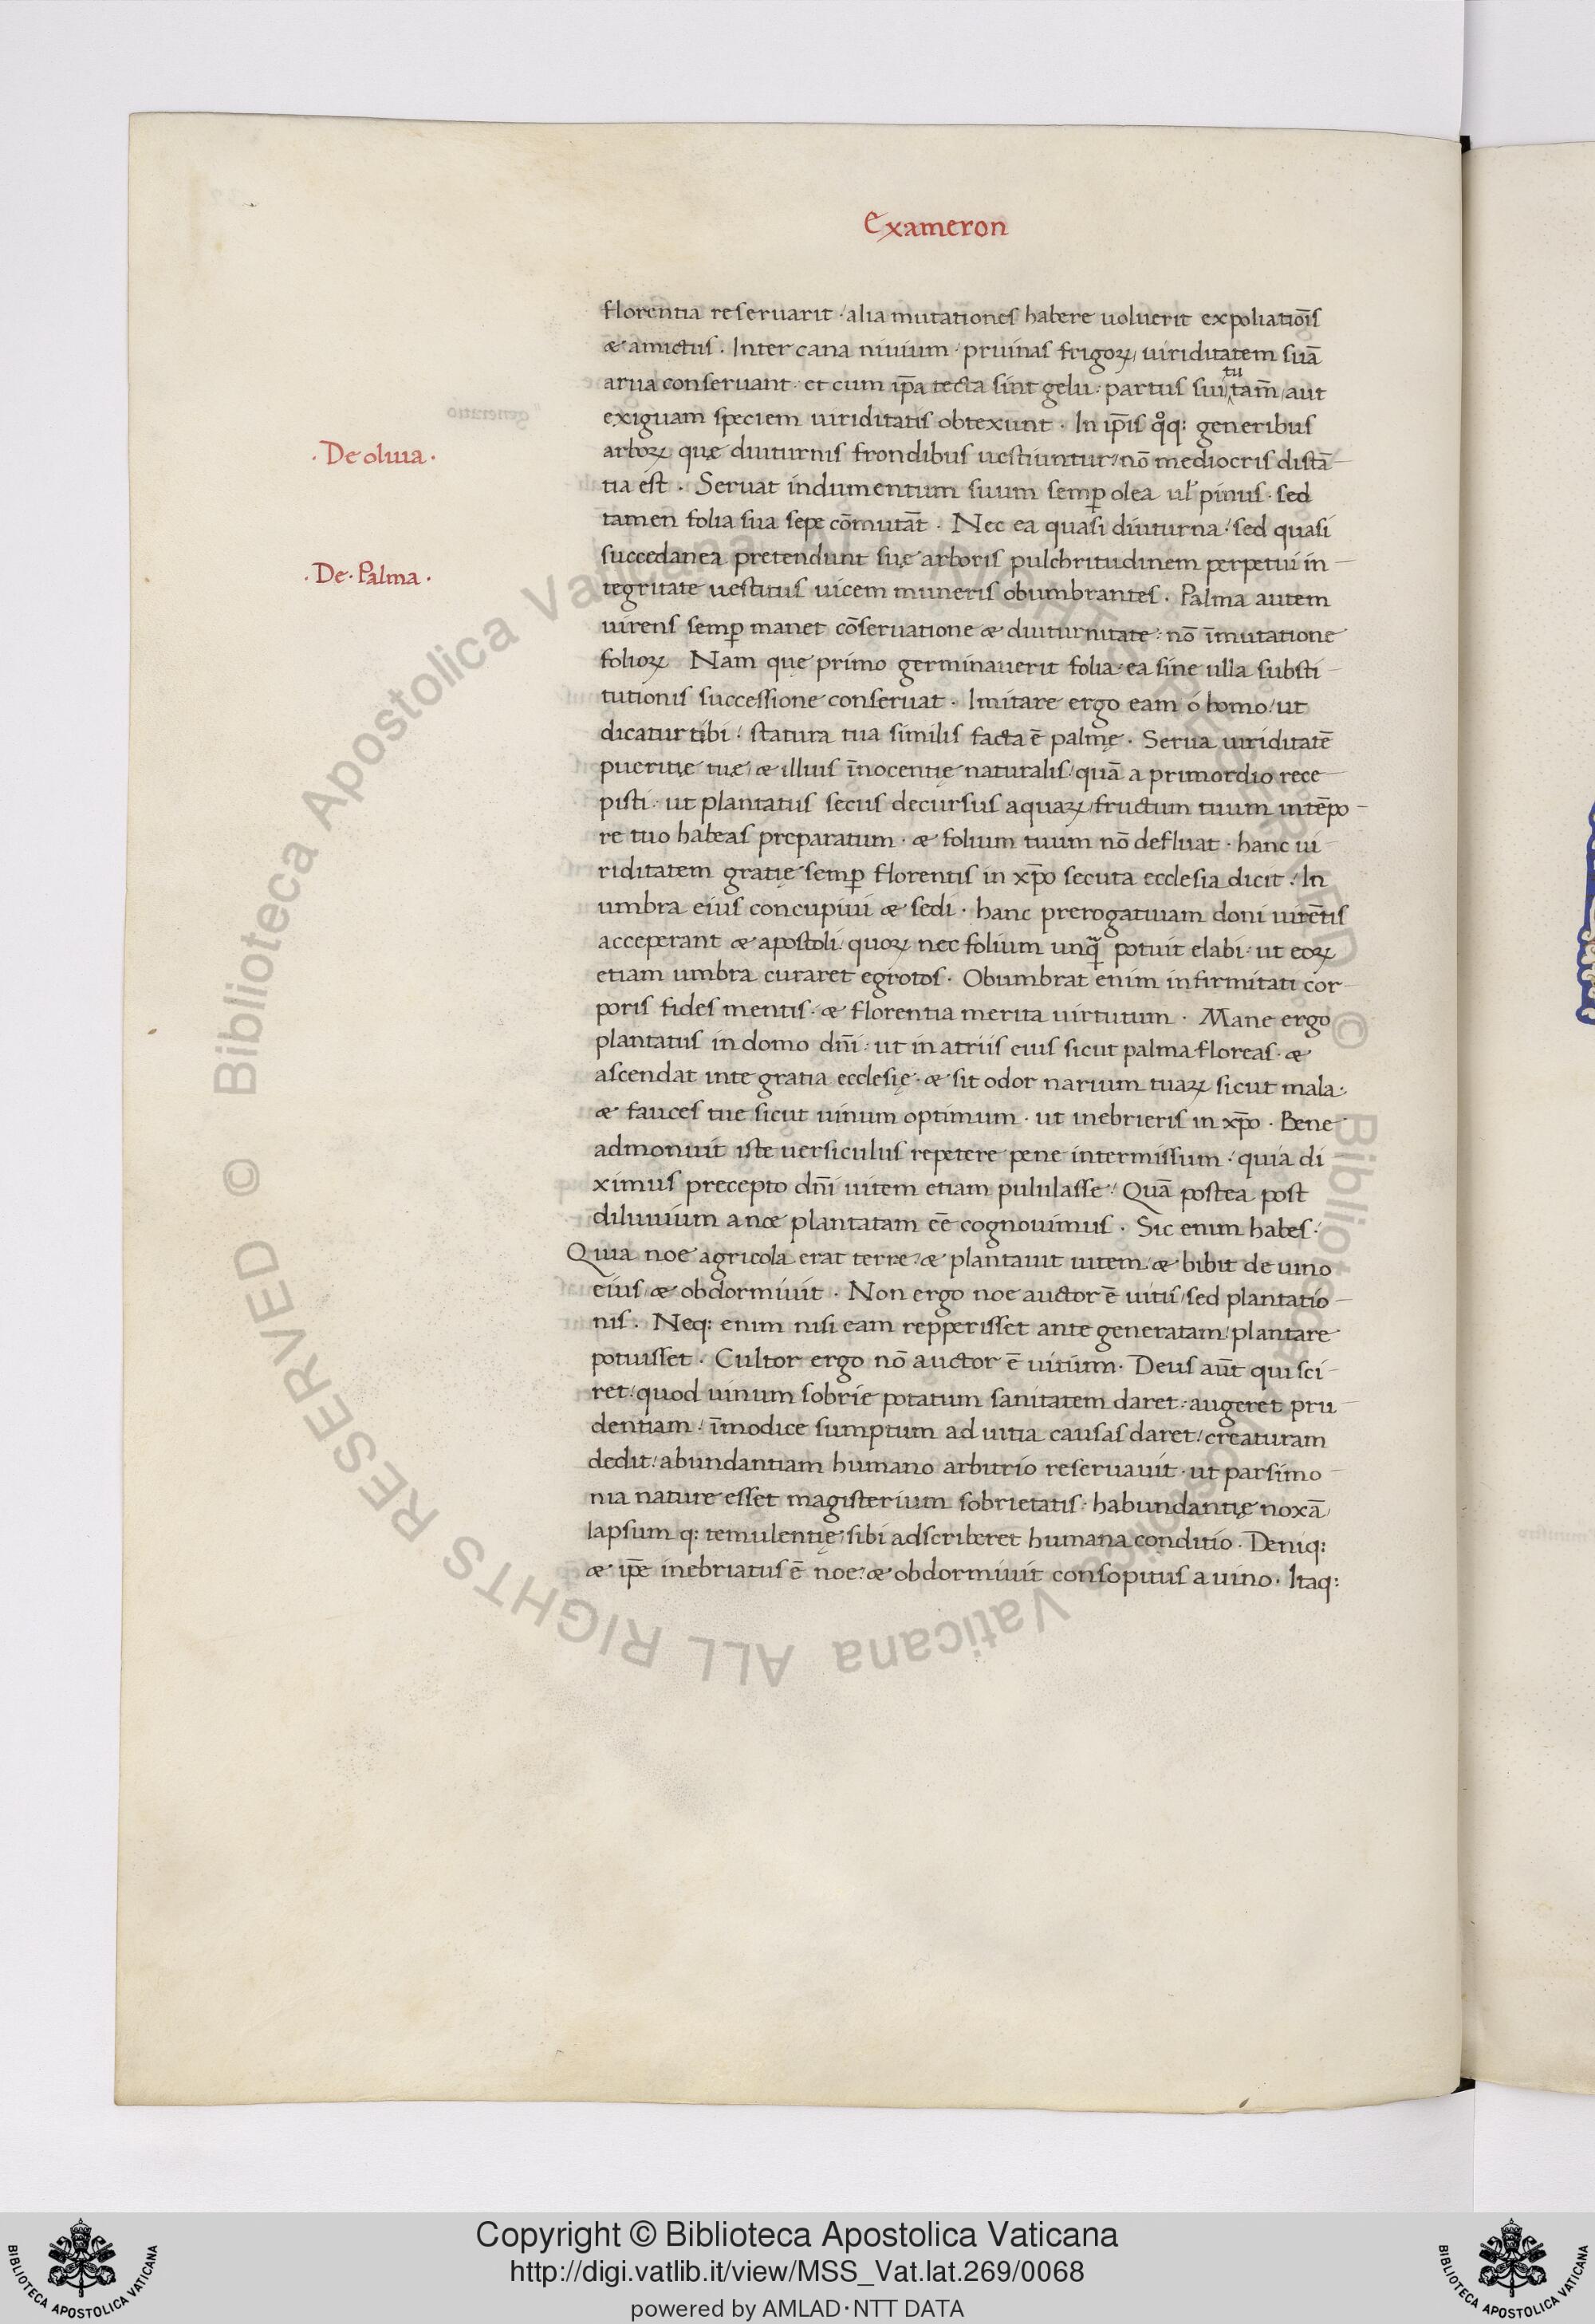 Exameron
florentia reseruarit · alia mutationes habere uoluerit expoliatiōis
& amictus . Inter cana niuium · pruinas frigoꝝ uiriditatem suā
arua conseruant · et cum ip̄a tecta sint gelu · partus sui tutam̄ aut
exiguam speciem uiriditatis obtexunt · In ip̄is qͦq: generibus
· De oliua ·
arboꝝ quę diuturnis frondibus uestiuntur · nō mediocris distā-
tia est . Seruat indumentum suum semꝑ olea ul̄ pinus · sed
tamen folia sua sepe cōmutāt . Nec ea quasi diuturna · sed quasi
succedanea pretendunt suę arboris pulchritudinem perpetui in-
· De · Palma ·
tegritate uestitus uicem muneris obumbrantes . Palma autem
uirens semꝑ manet cōseruatione & diuturnitate · nō īmutatione
folioꝝ Nam quę primo germinauerit folia · ea sine ulla substi-
tutionis successione conseruat . Imitare ergo eam ó homo · ut
dicatur tibi · statura tua similis facta ē palmę . Serua uiriditatē
pueritię tuę & illius īnocentię naturalis · quā a primordio rece-
pisti · ut plantatus secus decursus aquaꝝ fructum tuum in tēpo-
re tuo habeas preparatum · & folium tuum nō defluat · hanc ui-
riditatem gratię semꝑ florentis in xp̄o secuta ecclesia dicit · In
umbra eius concupiui & sedi · hanc prerogatiuam doni uirētis
acceperant & apostoli quoꝝ nec folium unqᷓ potuit elabi · ut eoꝝ
etiam umbra curaret egrotos . Obumbrat enim infirmitati cor-
poris fides mentis · & florentia merita uirtutum . Mane ergo
plantatus in domo dn̄i · ut in atriis eius sicut palma floreas · &
ascendat in te gratia ecclesię · & sit odor narium tuaꝝ sicut mala ·
& fauces tue sicut uinum optimum · ut inebrieris in xp̄o . Bene
admonuit iste uersiculus repetere pene intermissum · quia di
ximus precepto dn̄i uitem etiam pululasse · Quā postea post
diluuium a noe plantatam eē cognouimus . Sic enim habes ·
Quia noe agricola erat terre · & plantauit uitem · & bibit de uino
eius & obdormiuit . Non ergo noe auctor ē uitis sed plantatio-
nis . Neq: enim nisi eam repperisset ante generatam · plantare
potuisset . Cultor ergo nō auctor ē uitium . Deus aūt qui sci-
ret · quod uinum sobrie potatum sanitatem daret · augeret pru-
dentiam · īmodice sumptum ad uitia causas daret · creaturam
dedit · abundantiam humano arbitrio reseruauit · ut parsimo-
nia nature esset magisterium sobrietatis · habundantię noxā
lapsum q: temulentię sibi adscriberet humana conditio . Deniq:
& ip̄e inebriatus ē noe · & obdormiuit consopitus a uino . Itaq:
Copyright © Biblioteca Apostolica Vaticana
http://digi.vatlib.it/view/MSS_Vat.lat.269/0068
powered by AMLAD·NTT DATA
BIBLIOTECA APOSTOLICA VATICANA
BIBLIOTECA APOSTOLICA VATICANA
© Biblioteca Apostolica Vaticana ALL RIGHTS RESERVED
© Biblioteca Apostolica Vaticana ALL RIGHTS RESERVED